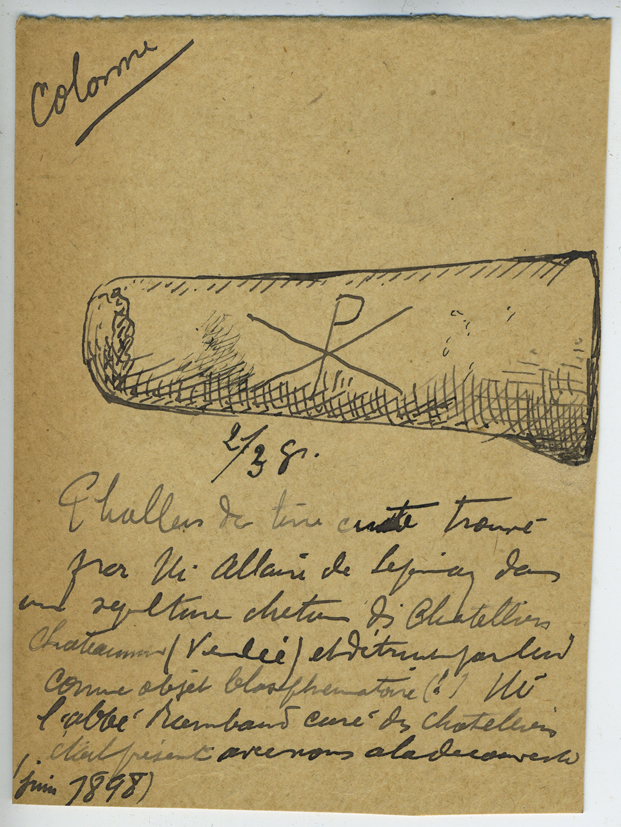 Colonne
P
2/3 gr.
Phallus de terre cuite trouvé
par Mr Allaire de Lépinay dans
une sepulture chetienne des Chatelliers
Chateaumur (Vendée) et détruit par lui
comme objet blasphematoire (!) Mr
l'abbé Rambaud curé des chatelliers
était présent avec nous a la decouverte
(juin 1898)